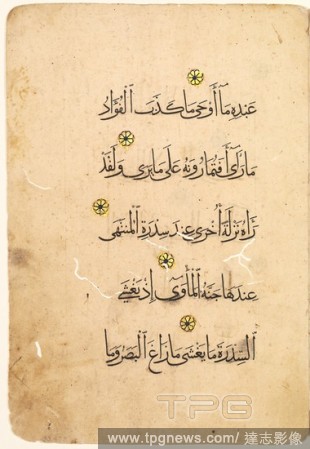 عَبْدِهِ مَآ أَوْحَى مَا كَذَبَ الْفُؤَادُ
مَا رَأَى أَفَتُمَارُونَهُ عَلَى مَا يَرَى وَلَقَدْ
رَآهُ نَزْلَةً أُخْرَى عِنْدَ سِدْرَةِ الْمُنْتَهَى
عِنْدَهَا جَنَّةُ الْمَأْوَى إِذْ يَغْشَى
السِّدْرَةَ مَا يَغْشَى مَا زَاغَ الْبَصَرُ وَمَا
TPG
www.tpgnews.com/ 達志影像